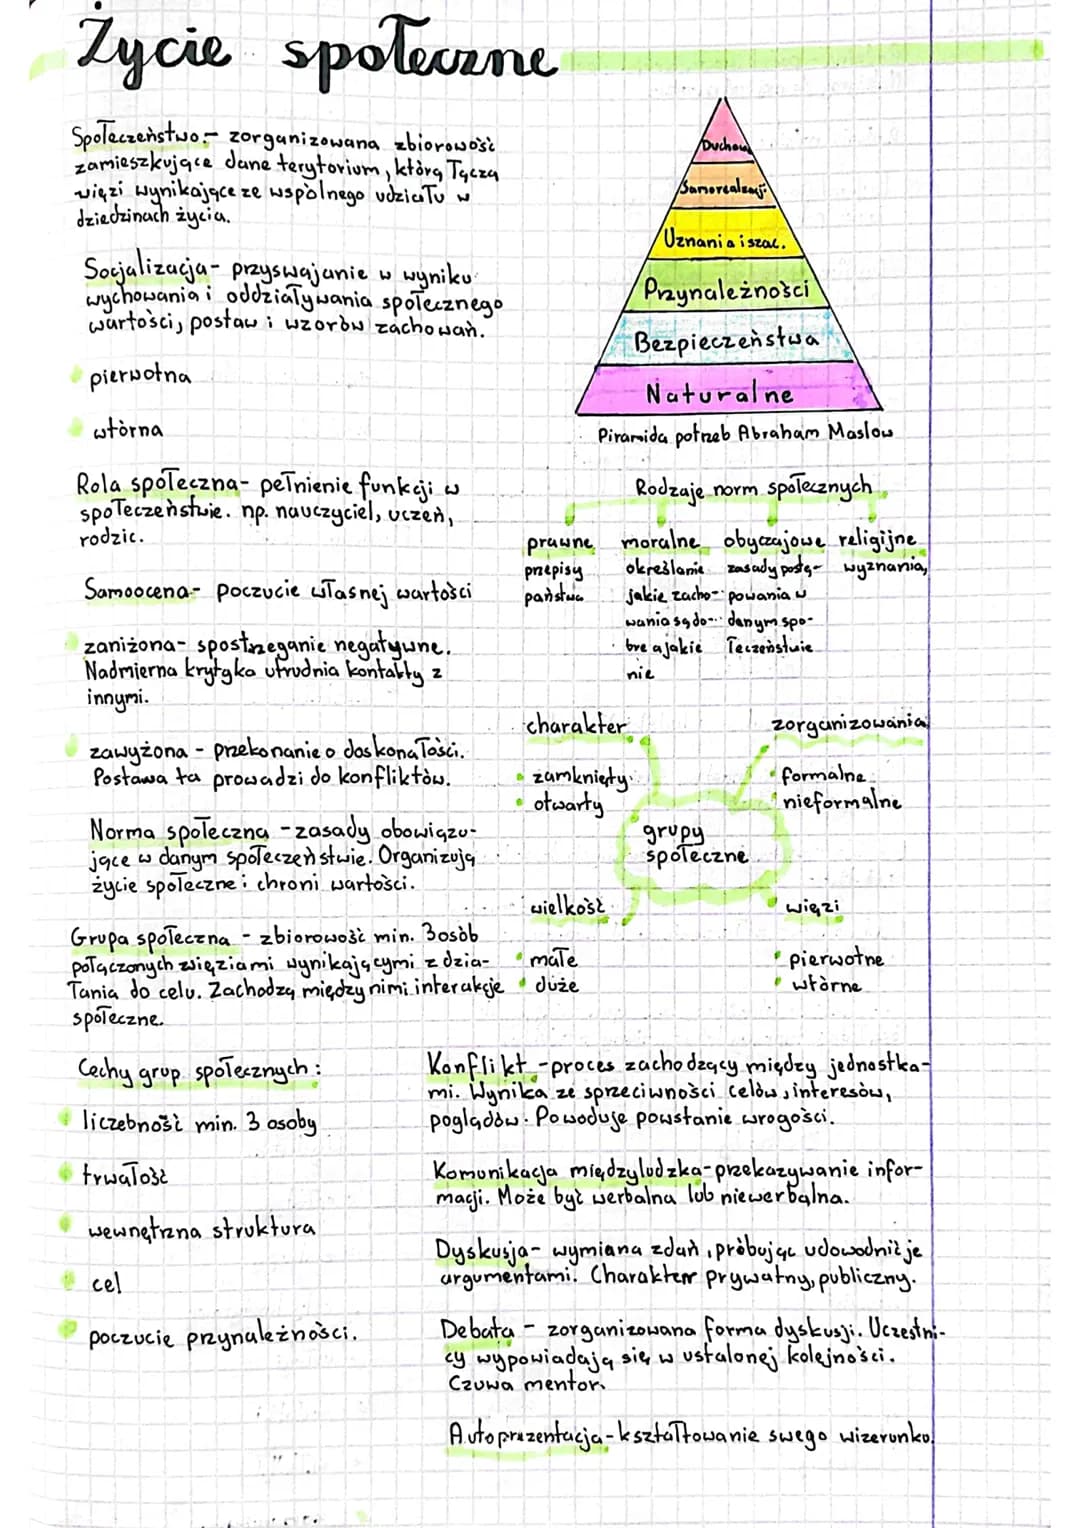 Życie społeczne
Społeczeństwo - zorganizowana zbiorowość
zamieszkujące dane terytorium, którą łączą
więzi wynikające ze wspólnego udziału w
dziedzinach życia.
Socjalizacja - przyswajanie w wyniku
wychowania i oddziaływania społecznego
wartości, postaw i wzorów zachowań.
pierwotna
wtórna
Duchowe
Samorealizacji
Uznania i szac.
Przynależności
Bezpieczeństwa
Naturalne
Piramida potrzeb Abraham Maslow
Rola społeczna - pełnienie funkcji w
społeczeństwie. np. nauczyciel, uczeń,
rodzic.
Samoocena - poczucie własnej wartości
zaniżona - spostrzeganie negatywne.
Nadmierna krytyka utrudnia kontakty z
innymi.
zawyżona - przekonanie o doskonałości.
Postawa ta prowadzi do konfliktów.
Rodzaje norm społecznych
prawne
przepisy
państwa
moralne
określanie
jakie zacho-
wania są do-
bre a jakie
nie
obyczajowe
zasady postę-
powania w
danym spo-
łeczeństwie
religijne
wyznania,
Norma społeczna - zasady obowiązu-
jące w danym społeczeństwie. Organizują
życie społeczne i chroni wartości.
Grupa społeczna - zbiorowość min. 3 osób
połączonych więziami wynikającymi z dzia-
łania do celu. Zachodzą między nimi interakcje
społeczne.
charakter
zamknięty
otwarty
zorganizowania
formalne
nieformalne
grupy
społeczne
wielkość
małe
duże
więzi
pierwotne
wtórne
Cechy grup społecznych:
liczebność min. 3 osoby
trwałość
wewnętrzna struktura
cel
poczucie przynależności.
Konflikt - proces zachodzący między jednostka-
mi. Wynika ze sprzeciwności celów, interesów,
poglądów. Powoduje powstanie wrogości.
Komunikacja międzyludzka - przekazywanie infor-
macji. Może być werbalna lub niewerbalna.
Dyskusja - wymiana zdań, próbując udowodnić je
argumentami. Charakter prywatny, publiczny.
Debata - zorganizowana forma dyskusji. Uczestni-
cy wypowiadają się w ustalonej kolejności.
Czuwa mentor.
Autoprezentacja - kształtowanie swego wizerunku.